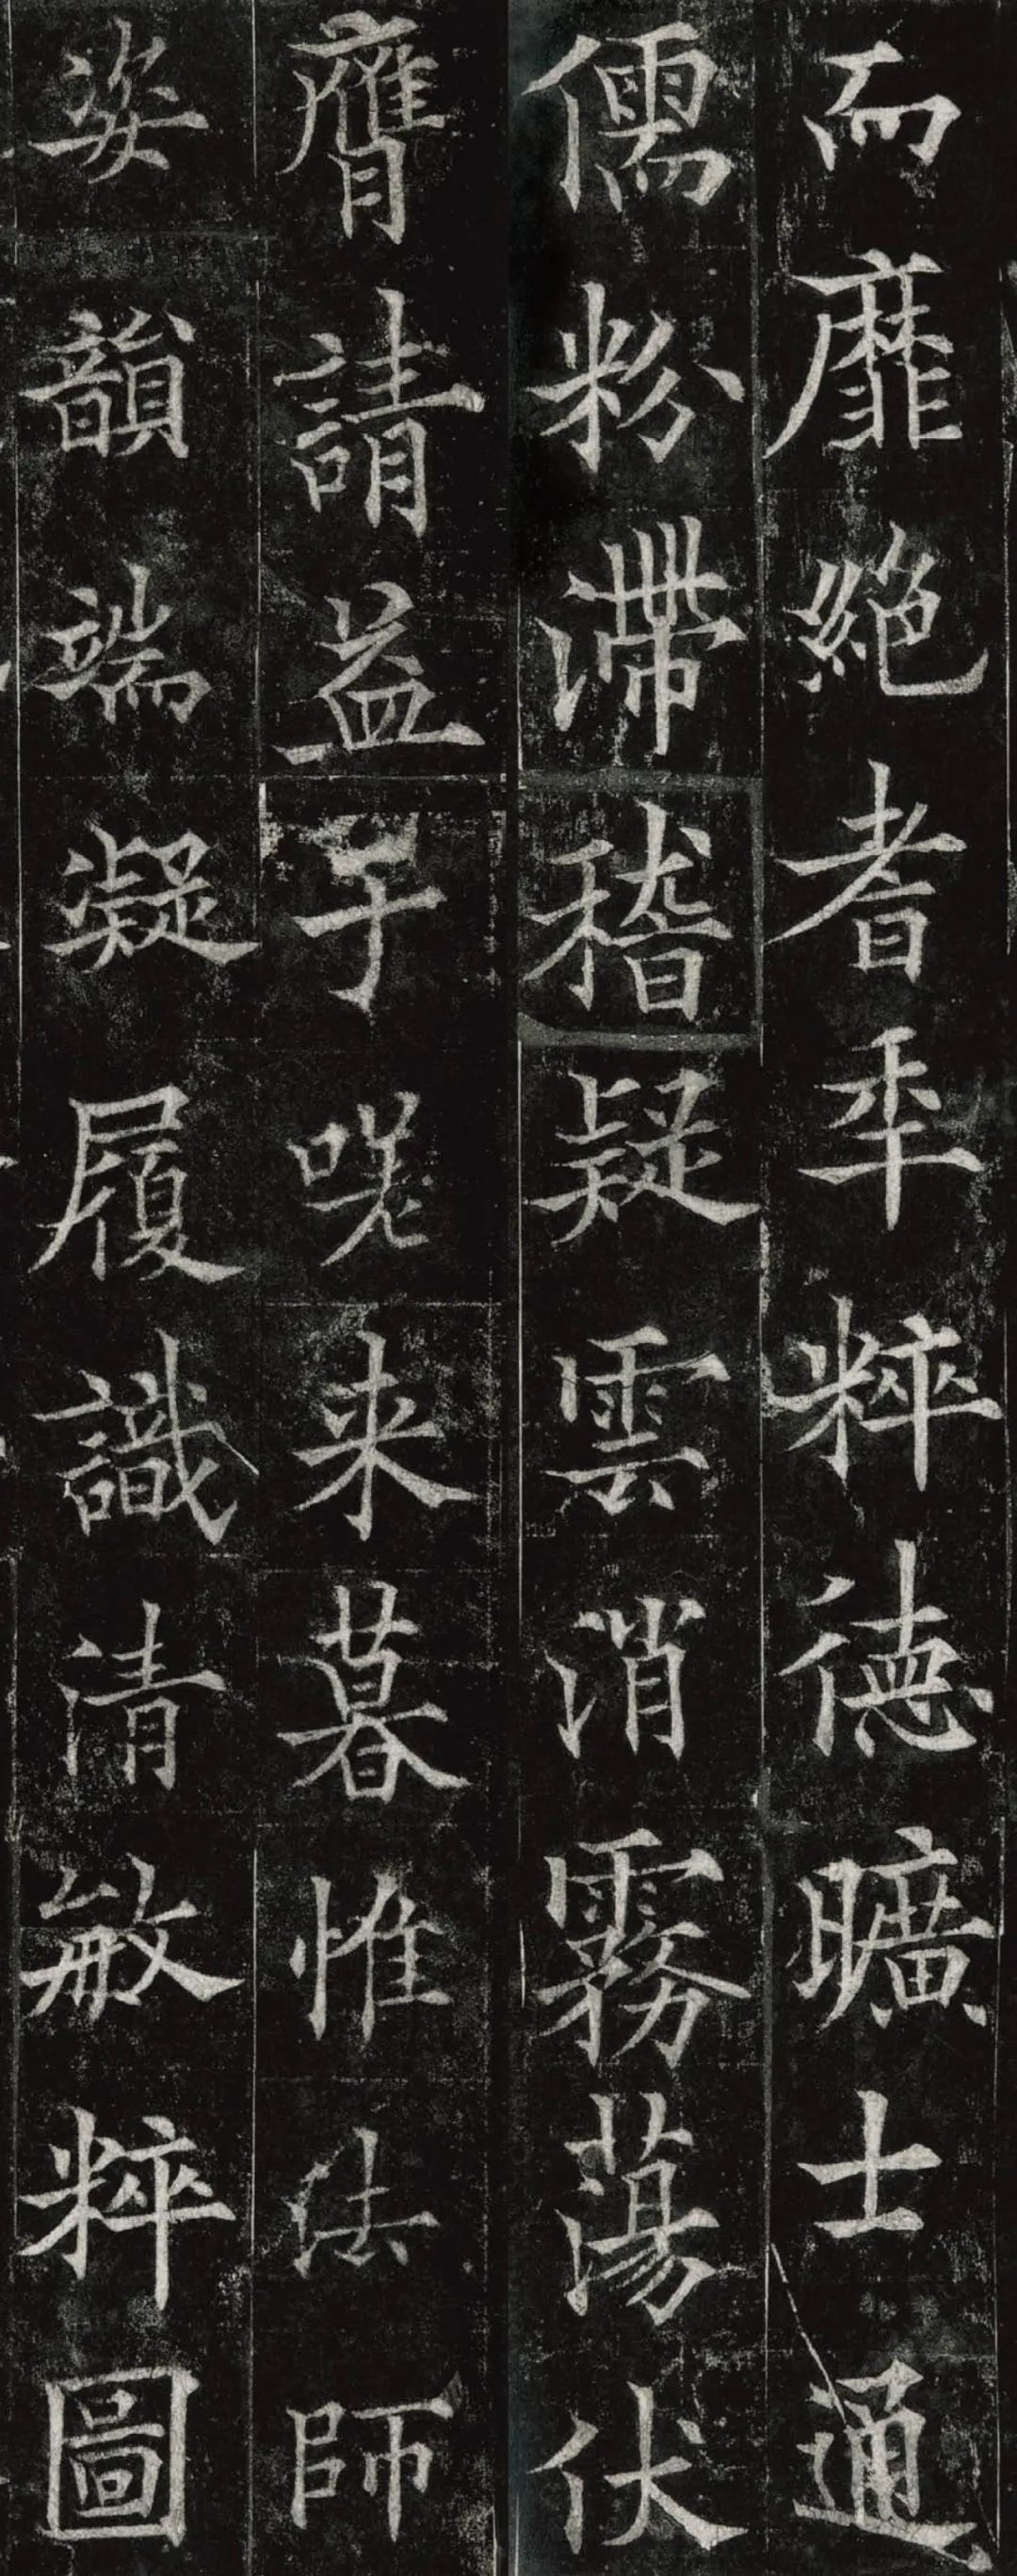 而靡絕耆年粹德曠士通
儒粉滯稽疑雲消霧蕩伏
膺請益于嗟来暮惟法師
姿韻端凝履識清敏粹圖